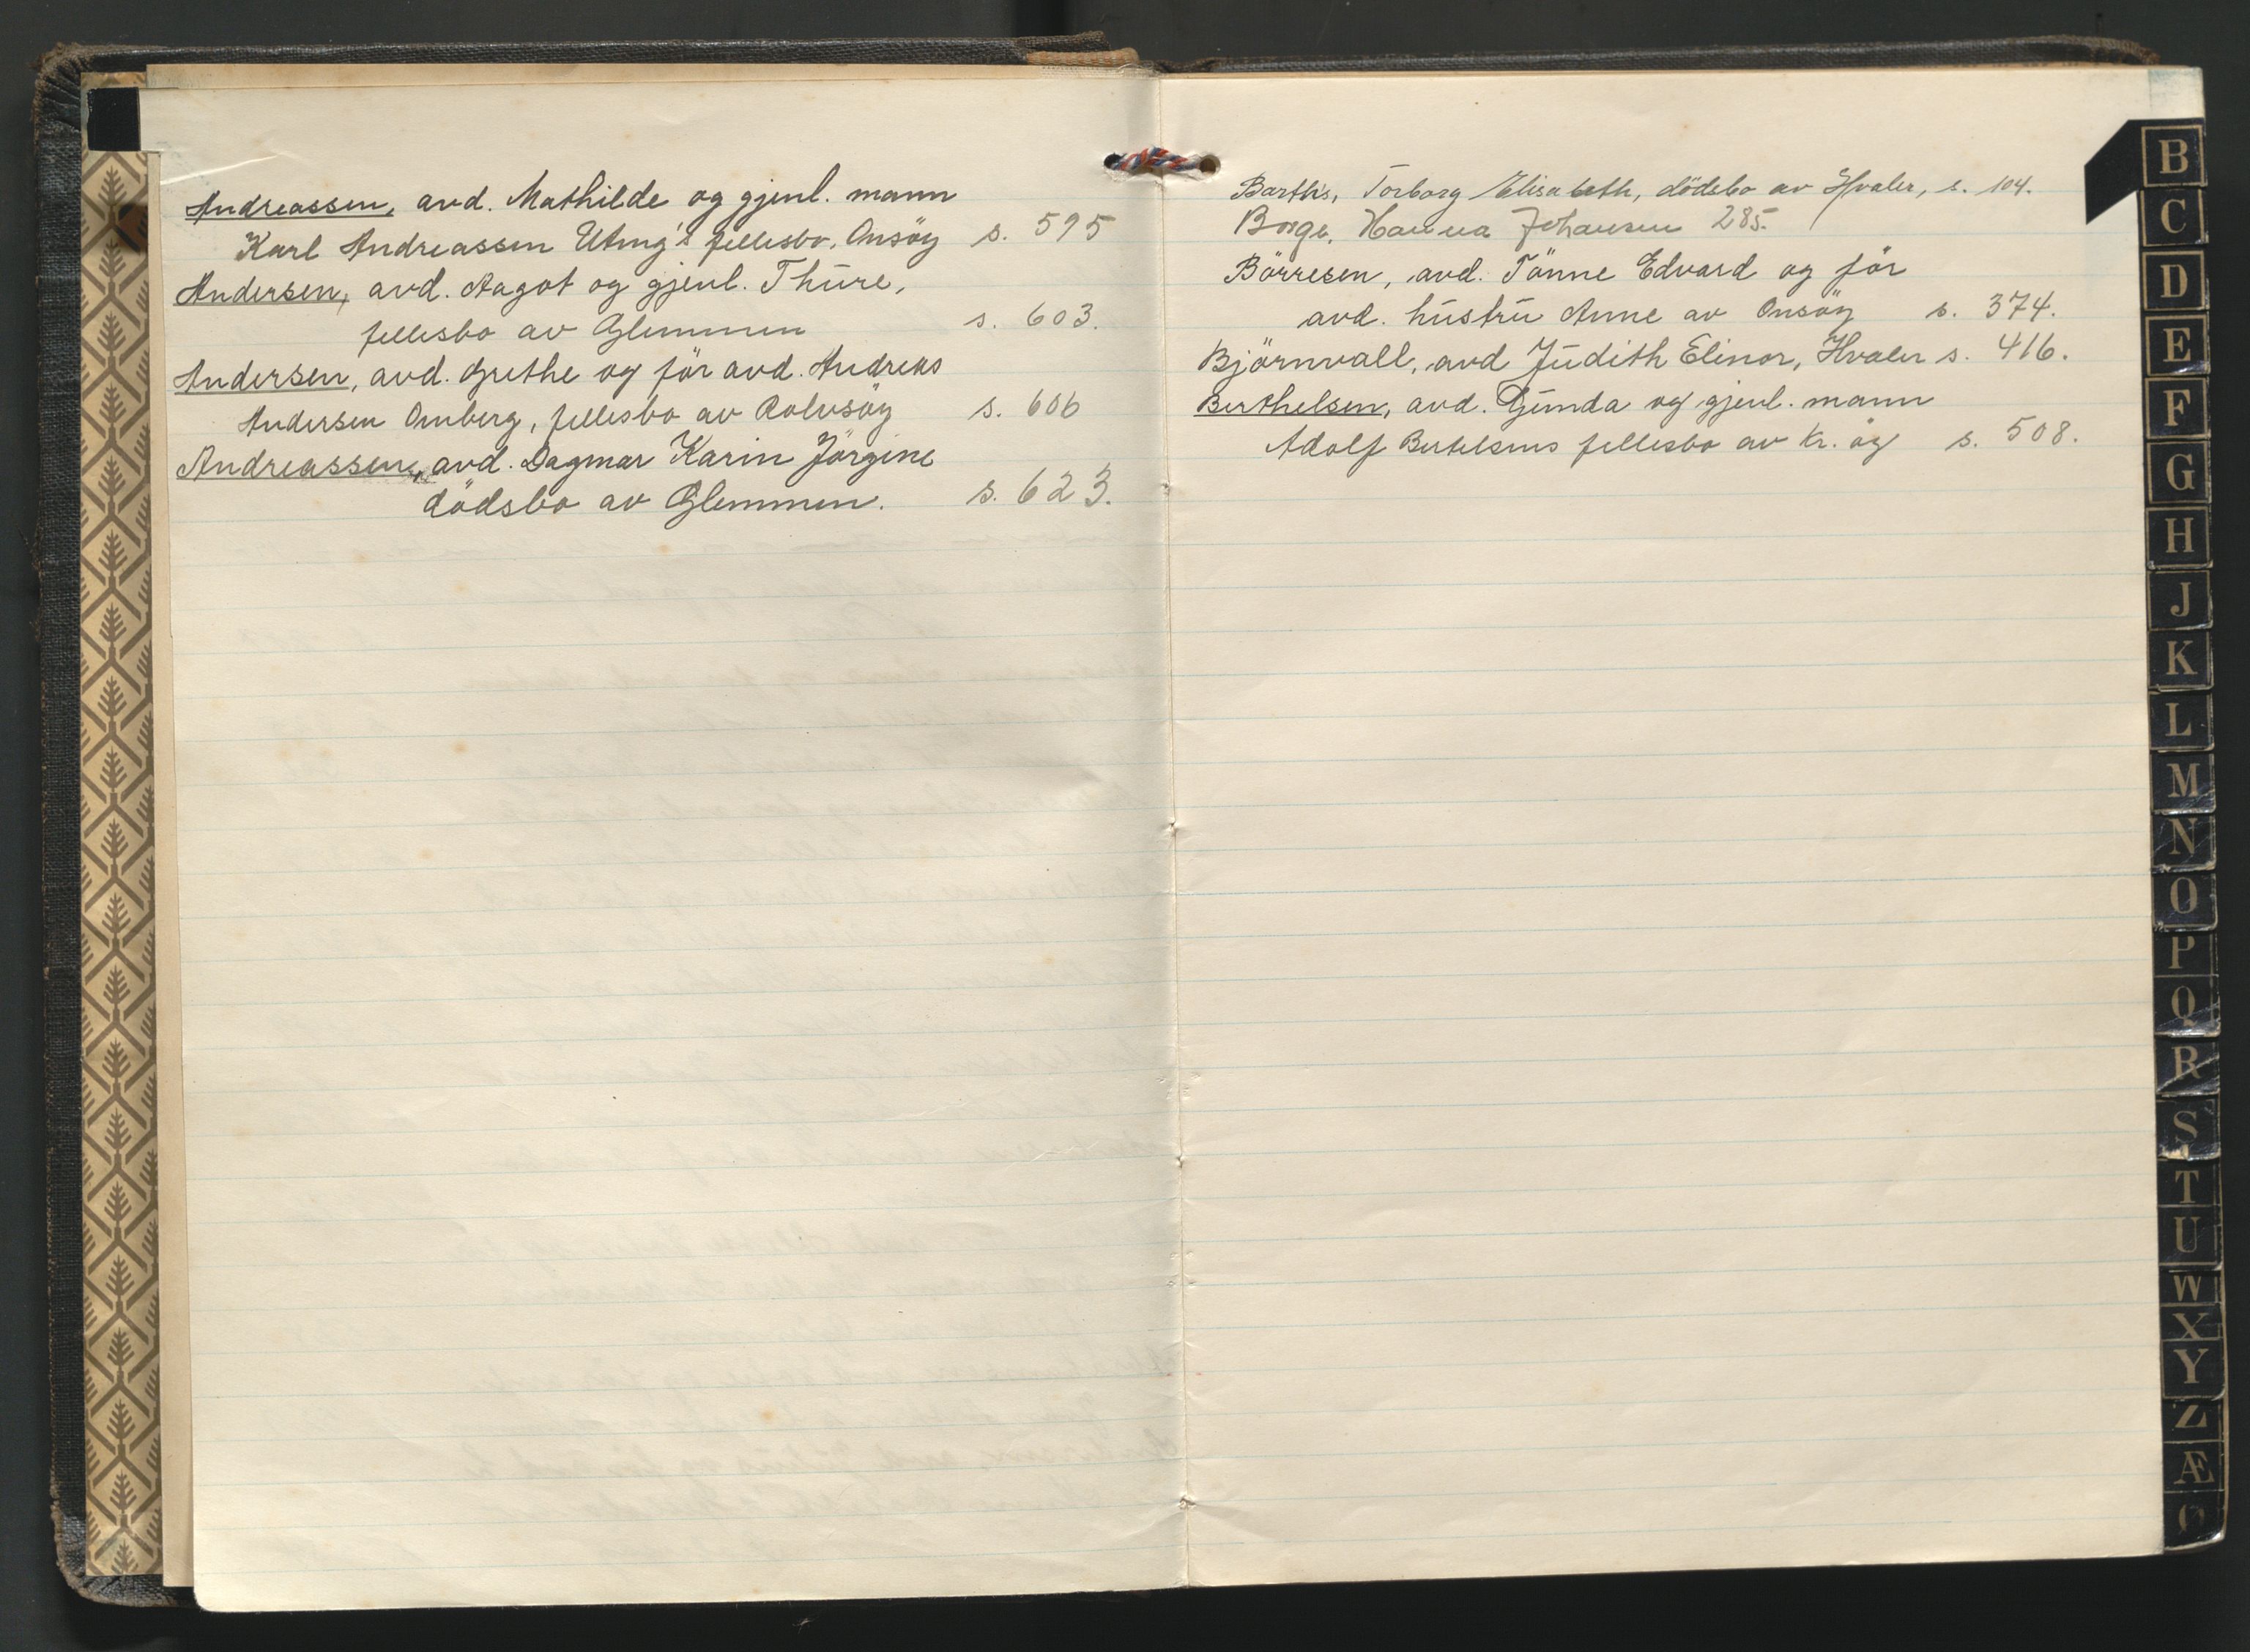 Andreassen, avd. Mathilde og gjenl. mann
Karl Andreassen Uteng's fellesbo, Onsöy s. 595
Andersen, avd. Aagot og gjenl. Thure,
fellesbo av Glemmen s. 603.
Andersen, avd. Grethe og för avd. Andreas
Andersen Omberg, fellesbo av Rolvsöy s. 606
Andreassen, avd. Dagmar Karin Jörgine
dödsbo av Glemmen. s. 623.
Barth's, Torborg Elisabeth, dödsbo av Hvaler, s. 104.
Borge, Hanna Johansen 285.
Börresen, avd. Tönne Edvard og för
avd. hustru Anne av Onsöy s. 374.
Björnvall, avd Judith Elinor, Hvaler s. 416.
Berthelsen, avd. Gunda og gjenl. mann
Adolf Bertelsens fellesbo av Kr. öy s. 508.
B
C
D
E
F
G
H
J
K
L
M
N
O
P
Q
R
S
T
U
W
X
Y
Z
Æ
Ø